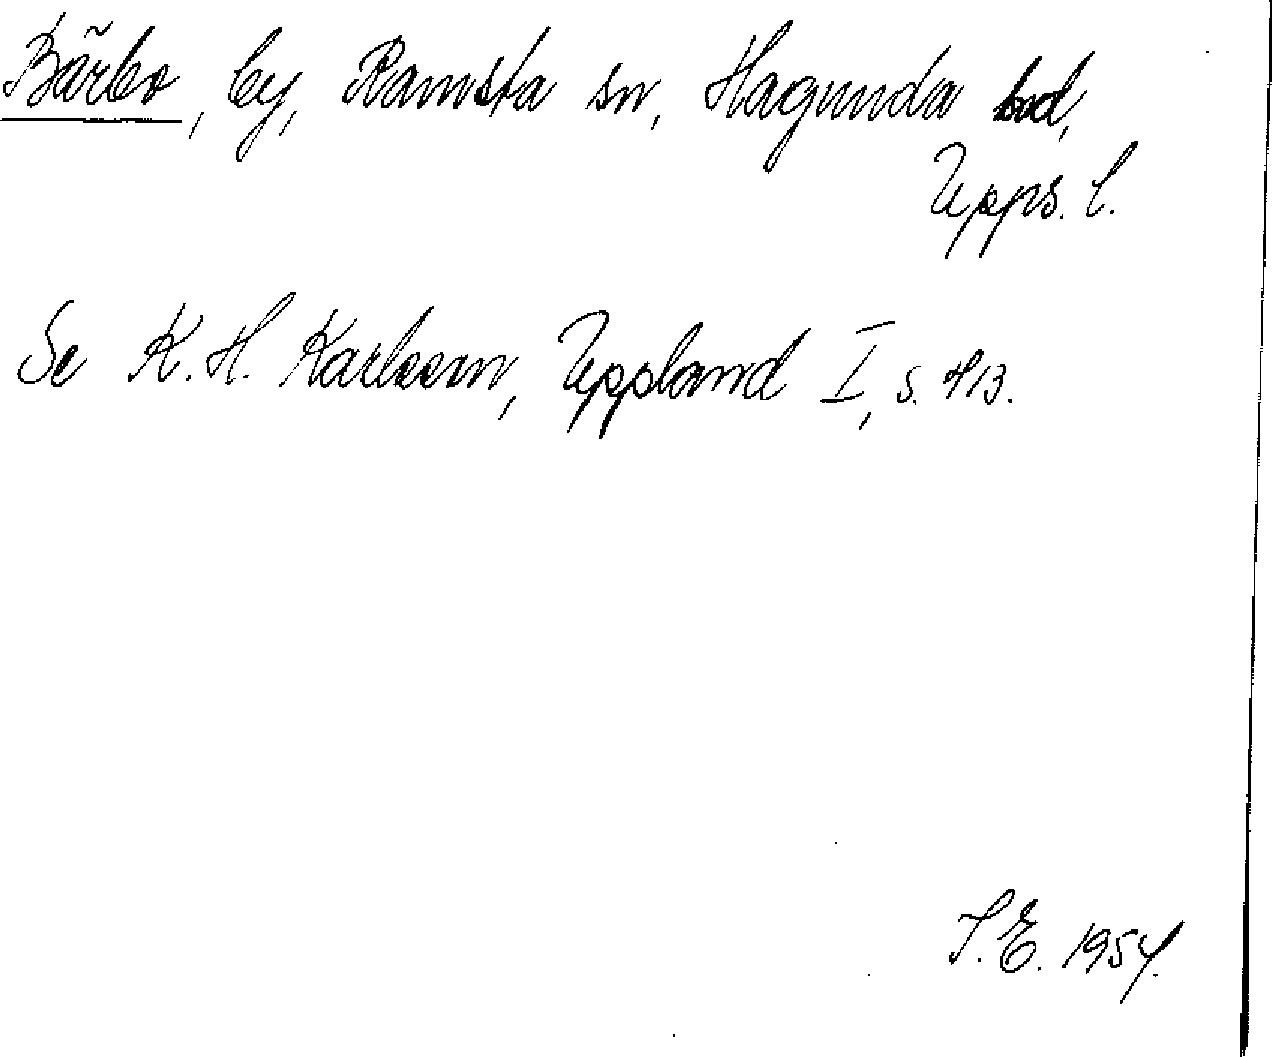 Bärbo, by, Ramsta sn, Hagunda hd,
Upps. l.
Se K. H. Karlsson, Uppland I, s. 413.
S. E. 1954.